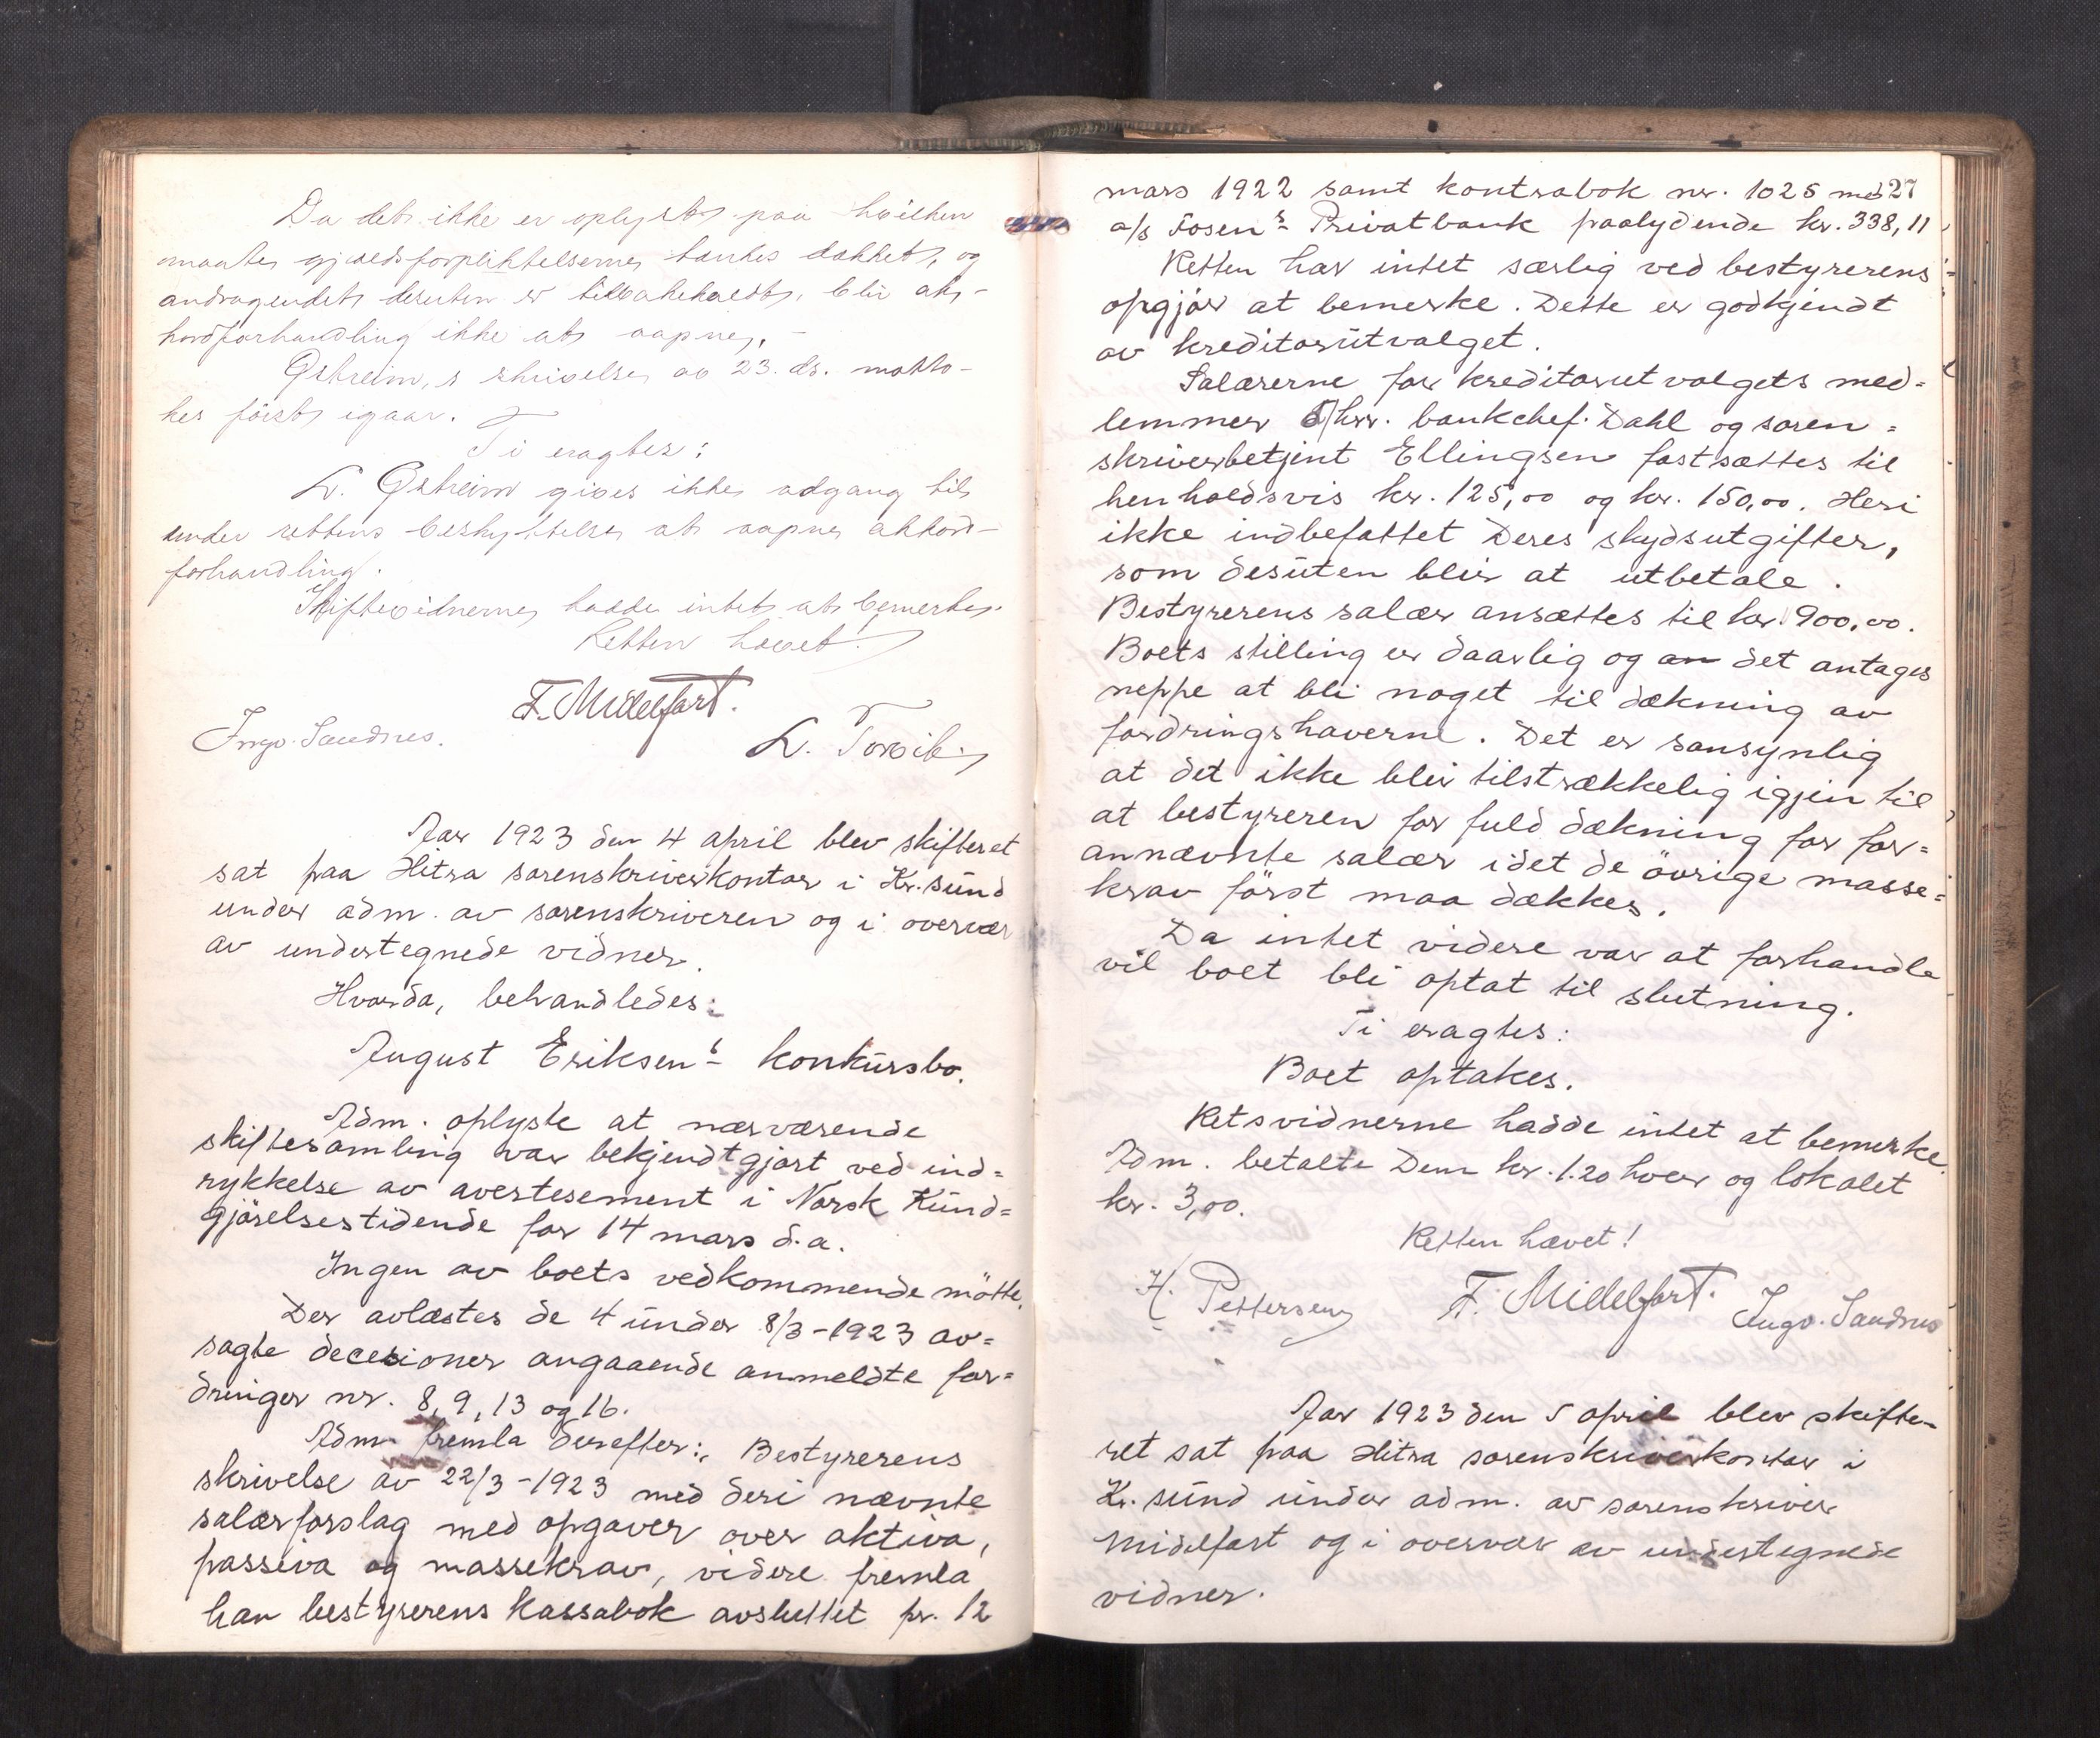 Da det ikke er oplyst paa hvilken
maate gjældsforpliktelserne tænkes dækket, og
andragendet desuten er tilbakekaldt, blir ak-
kordforhandling ikke at aapne.-
Østreim,s skrivelse av 23. ds. motto-
kes først igaar.
Ti eragtes:
L. Østreim gives ikke adgang til
under rettens beskyttelse at aapne akkord-
forhandling.
Skiftevidnerne hadde intet at bemerke.
Retten hævet.
F. Midelfart.
Ingv. Sandnes. L. Torvik
Aar 1923 den 4 april blev skifteret
sat paa Hitra sorenskriverkontor i Kr.sund
under adm. av sorenskriveren og i overvær
av undertegnede vidner.
Hvorda, behandledes:
August Eriksens konkursbo.
Adm. oplyste at nærværende
skiftesamling var bekjendtgjort ved ind=
rykkelse av avertesement i Norsk Kund=
gjørelsestidende for 14 mars d.a.
Ingen av boets vedkommende møtte.
Der avlæstes de 4 under 8/3-1923 av=
sagte decesioner angaaende anmeldte for=
dringer nr. 8, 9, 13 og 16.
Adm. fremla derefter:, Bestyrerens
skrivelse av 22/3-1923 med deri nævnte
salærforslag med opgaver over aktiva,
passiva og massekrav, videre fremla
han bestyrerens Kassabok avsluttet pr. 12
27
mars 1922 samt kontrabok nr. 1025 med
a/s Fosens Privatbank paalydende kr. 338,11
Retten har intet særlig ved bestyrerens
opgjør at bemerke. Dette er godkjendt
av kreditorutvalget.
Salærerne for kreditorutvalgets med=
lemmer hrr. bankchef. Dahl og soren=
skriverbetjent Ellingsen fastsættes til
henholdsvis kr. 125,00 og kr. 150,00. Heri
ikke indbefattet Deres skydsutgifter,
som desuten blir at utbetale.
Bestyrerens salær ansættes til kr. 900,00.
Boets stilling er daarlig og an det antages
neppe at bli noget til dækning av
fordringshaverne. Det er sansynlig
at det ikke blir tilstrækkelig igjen til
at bestyreren for fuld dækning for for=
annævnte salær idet de øvrige masse=
krav först maa dækkes.
Da intet videre var at forhandle
vil boet bli optat til slutning.
Ti eragtes:
Boet optakes.
Retsvidnerne hadde intet at bemerke.
Adm. betalte Dem kr. 1.20 hver og lokalet
kr. 3,00.
Retten hævet!
H. Pettersen F. Midelfart. Ingv. Sandnes
Aar 1923 den 5 april blev skifte-
ret sat paa Hitra sorenskriverkontor i
Kr.sund under adm. av sorenskriver
Midelfart og i overvær av undertegnede
vidner.